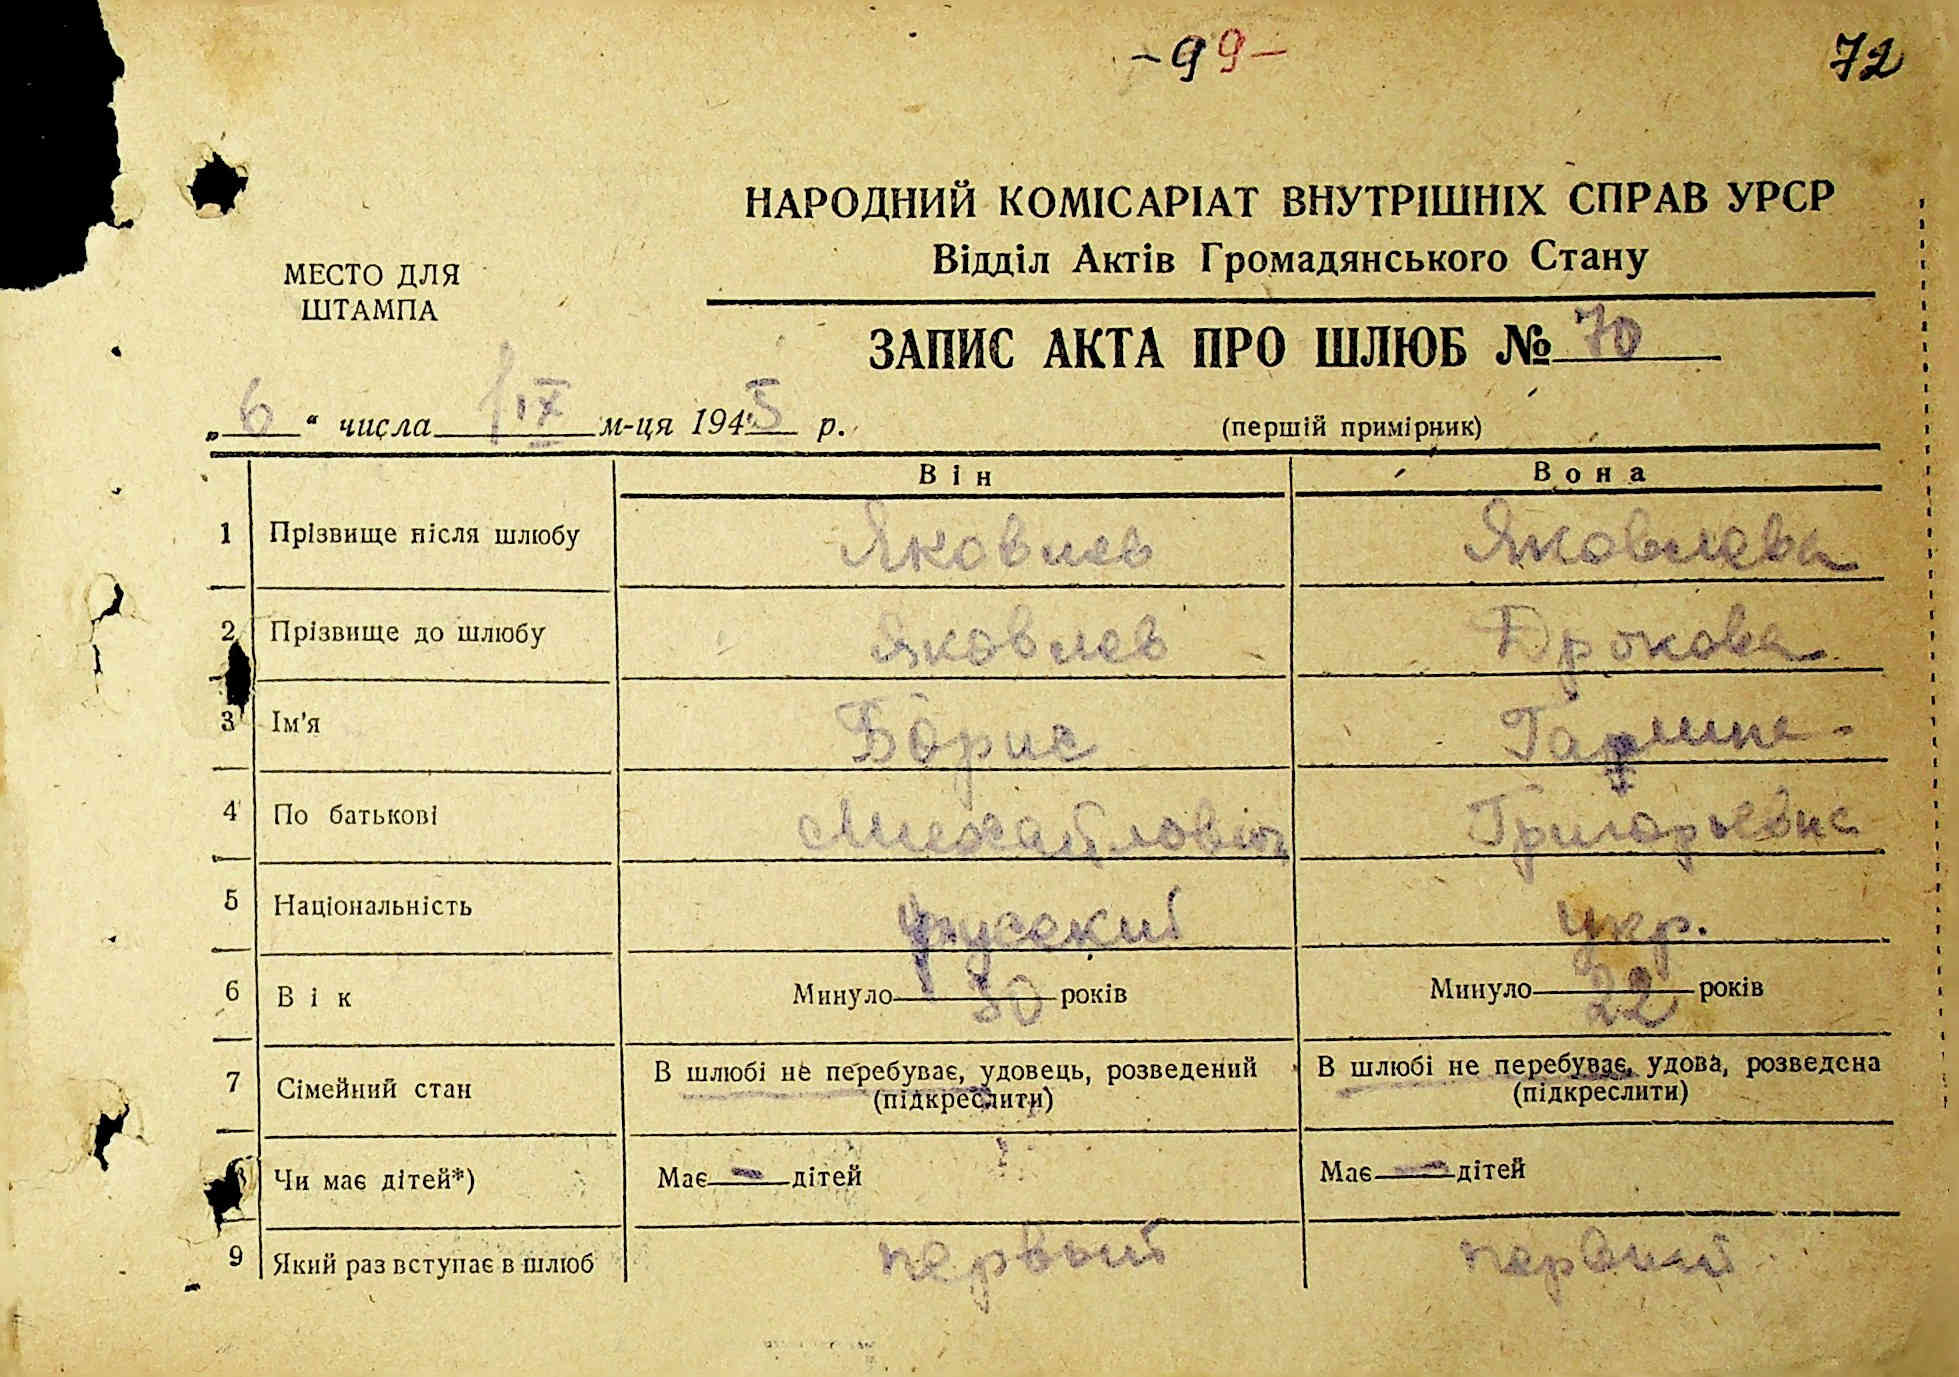 -99-
72
НАРОДНИЙ КОМІСАРІАТ ВНУТРІШНІХ СПРАВ УРСР
Відділ Актів Громадянського Стану
МЕСТО ДЛЯ
ШТАМПА
ЗАПИС АКТА ПРО ШЛЮБ № 70
„6“ числа IX м-ця 1945 р.
(першій примірник)
Він Вона
1 Прізвище після шлюбу Яковлев Яковлева
2 Прізвище до шлюбу Яковлев
3 Ім'я Борис
4 По батькові Михайлович Григорьевна
5 Національність русский укр.
6 Вік Минуло 30 років Минуло 22 років
7 Сімейний стан В шлюбі не перебуває, удовець, розведений В шлюбі не перебуває, удова, розведена
(підкреслити) (підкреслити)
8 Чи має дітей*) Має — дітей Має — дітей
9 Який раз вступає в шлюб первый первый